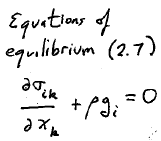 Equations of
equilibrium (2.7)
∂σ_ik / ∂x_k + ρg_i = 0